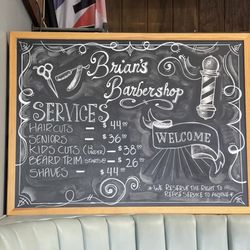 Brian's
Barbershop
SERVICES
HAIRCUTS — $44.00
SENIORS — $36.00
KIDS CUTS — $38.00
BEARD TRIM — $26.00
SHAVES — $44.00
WELCOME
* WE RESERVE THE RIGHT TO
REFUSE SERVICE TO ANYONE *